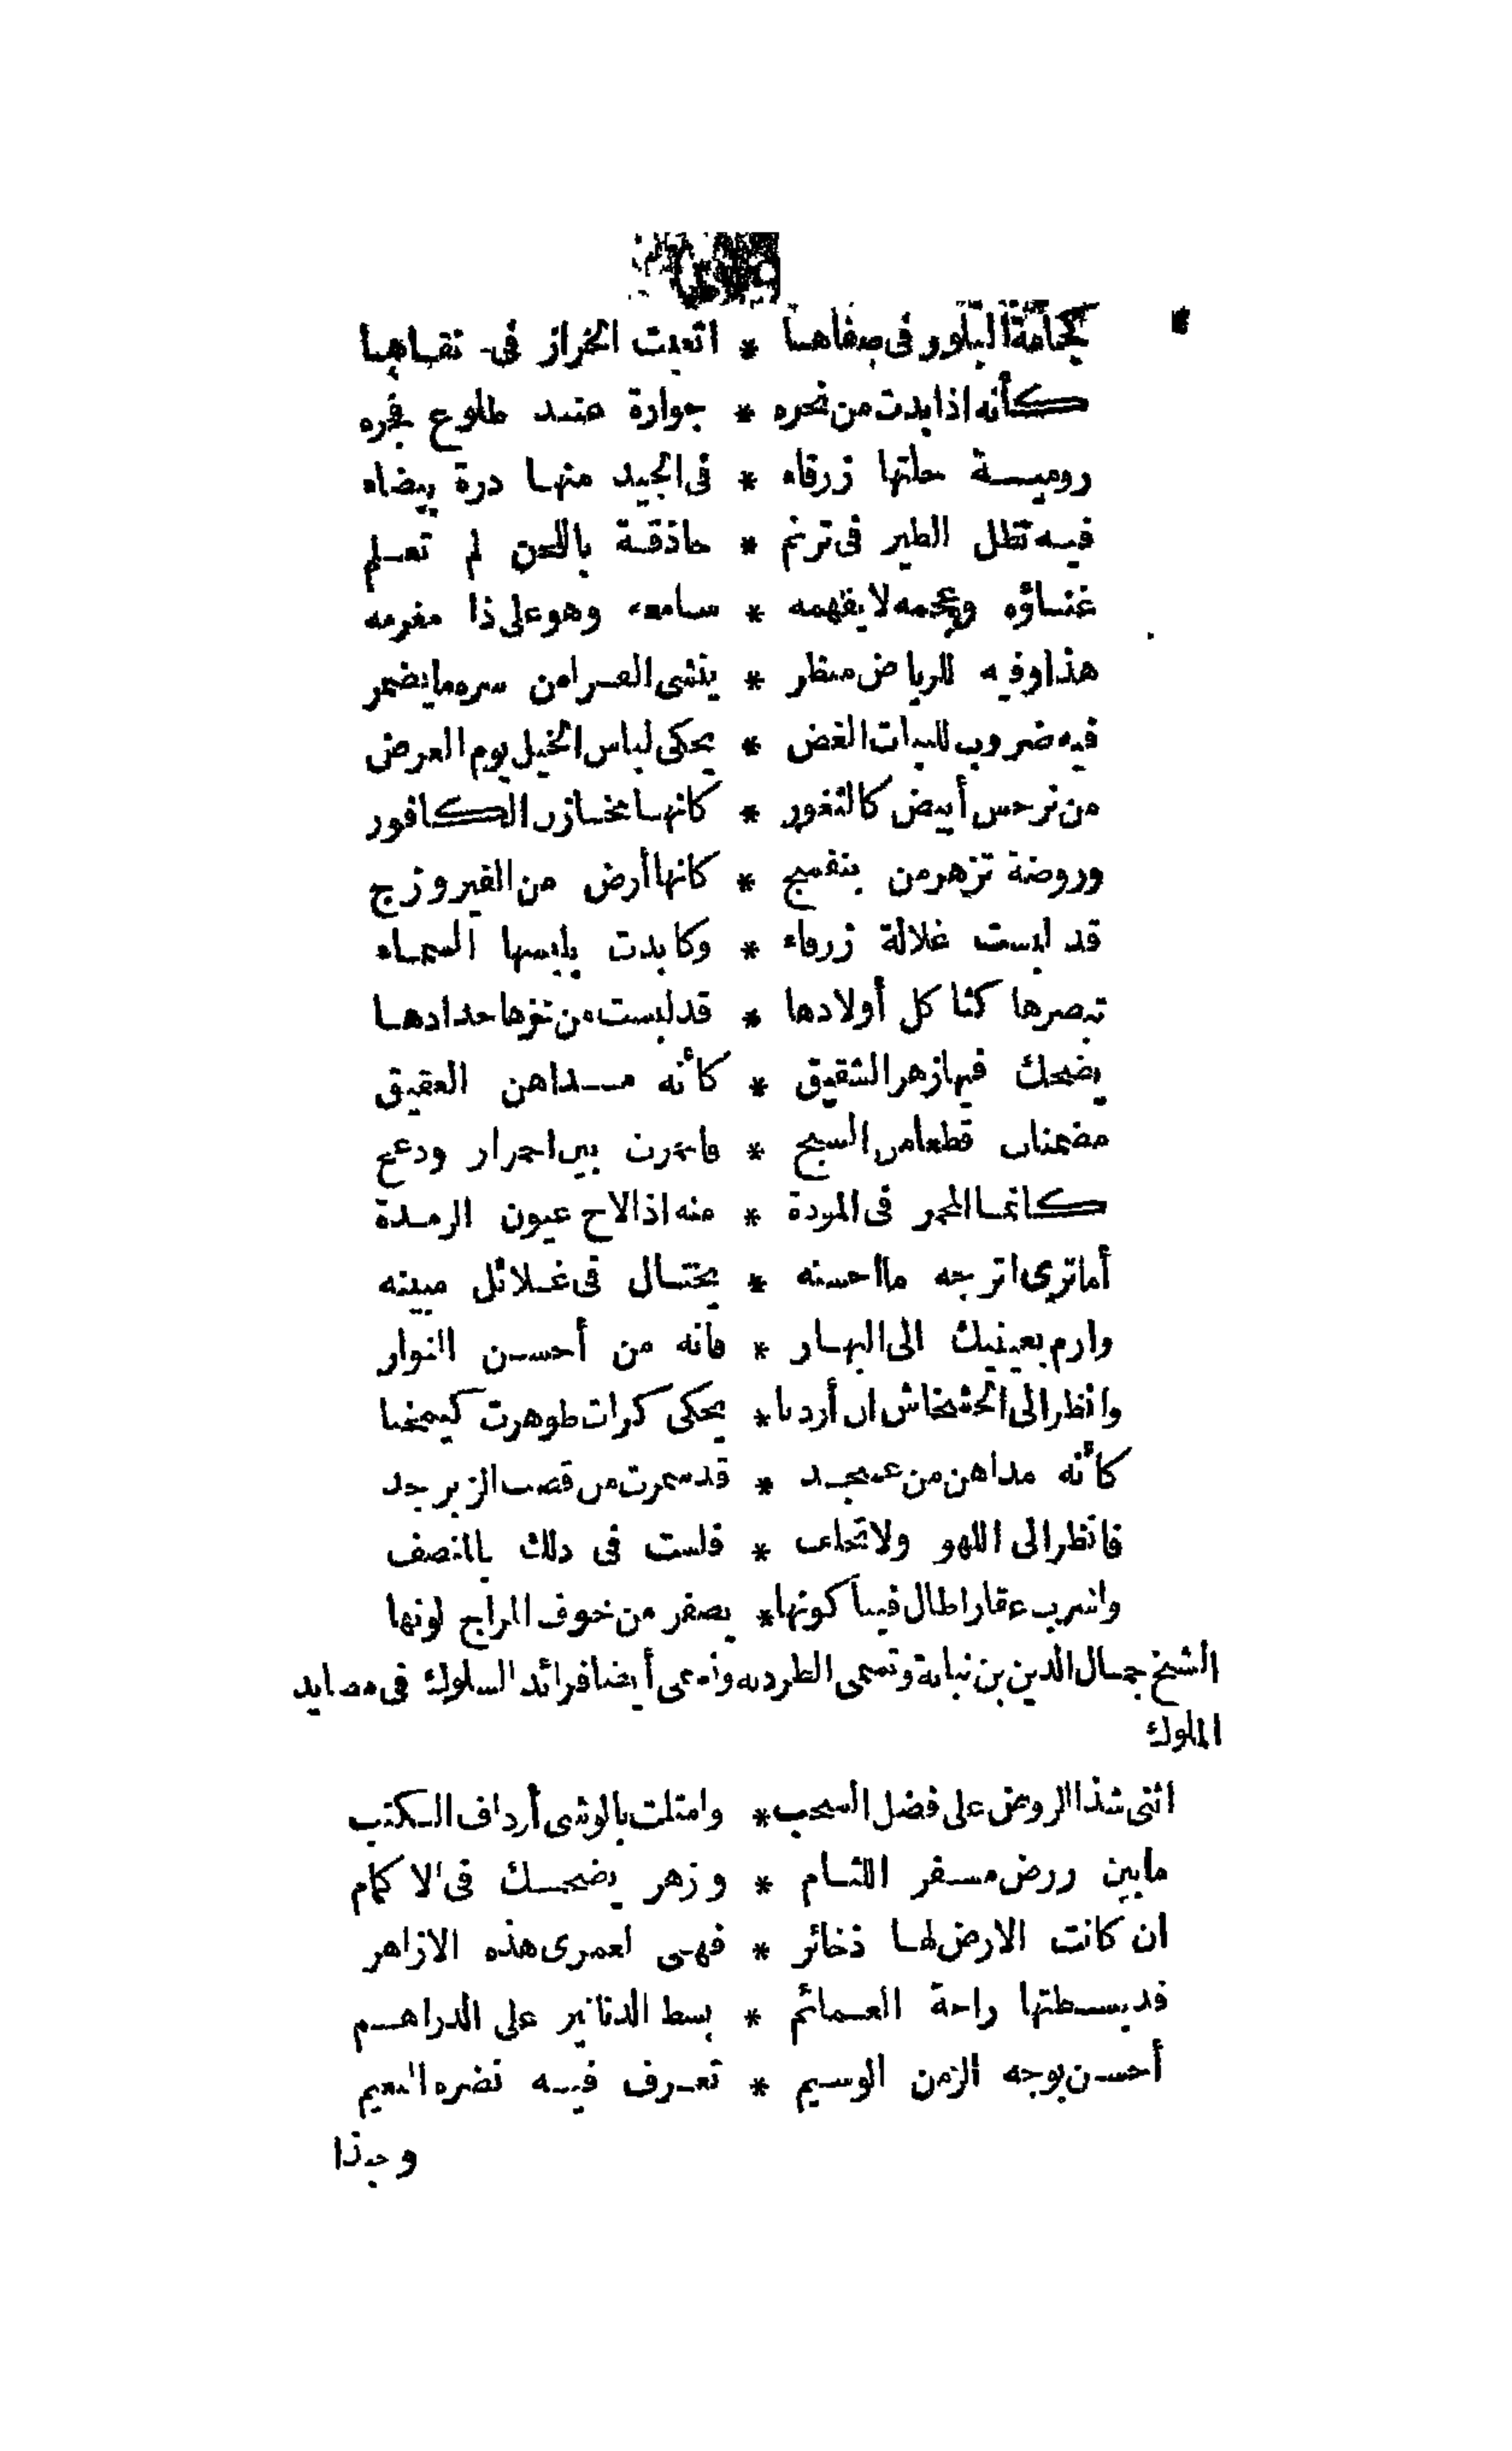 كجامة البلور فى صفاهسا * اتعبت الخراز فى تقساهسا
كأنه اذا بدت من نحره * جوارة عند طلوع فجره
روميسة حلتها زرقاء * فى الجيد منها درة بيضاء
فيه تظل الطير فى ترنم * حاذقة باللحن لم تعلم
غناؤه وعجمه لا يفهمه * سامعه وهو على ذا مغرمه
هذا وفيه للرياض منظر * يفشى الثرا من سره ما يضمر
فيه ضروب للنبات الغض * يحكى لباس الخيل يوم العرض
من نرجس أبيض كالثغور * كانها مخازن الكافور
وروضة تزهر من بنفسج * كانها أرض من الفيروزج
قد لبست غلالة زرقاء * وكابدت بلبسها السماء
تبصرها كثاكل أولادها * قد لبست من حزنها حدادها
يضحك فيها زهر الشقيق * كأنه مداهن العقيق
مضمنات قطعا من السبج * فاشرقت بين احمرار ودعج
كانما المحمر فى المودة * منه اذا لاح عيون الرمدة
أما ترى اترجه ما احسنه * يختال فى غلائل مبينه
وارم بعينيك الى البهار * فانه من أحسن النوار
وانظر الى الخشخاش ان أردنا * يحكى كرات ظوهرت كيمختا
كأنه مداهن من عسجد * قد سمرت من قضب الزبرجد
فانظر الى اللهو ولا تخلف * فلست فى ذلك بالمنصف
واشرب عقارا طال فينا كونها * يصفر من خوف المزاج لونها
الشيخ جمال الدين بن نباتة وتسمى الطردية وتدعى أيضا فرائد السلوك فى مصايد
الملوك
اثنى شذا الروض على فضل السحب * وامتلت بالوشى أرداف الكتب
ما بين روض مسفر اللثام * وزهر يضحك فى الاكمام
ان كانت الارض لها ذخائر * فهى لعمرى هذه الازاهر
قد بسطتها راحة الغمائم * بسط الدنانير على الدراهم
أحسن بوجه الزمن الوسيم * تعرف فيه نضرة النعيم
وحبذا